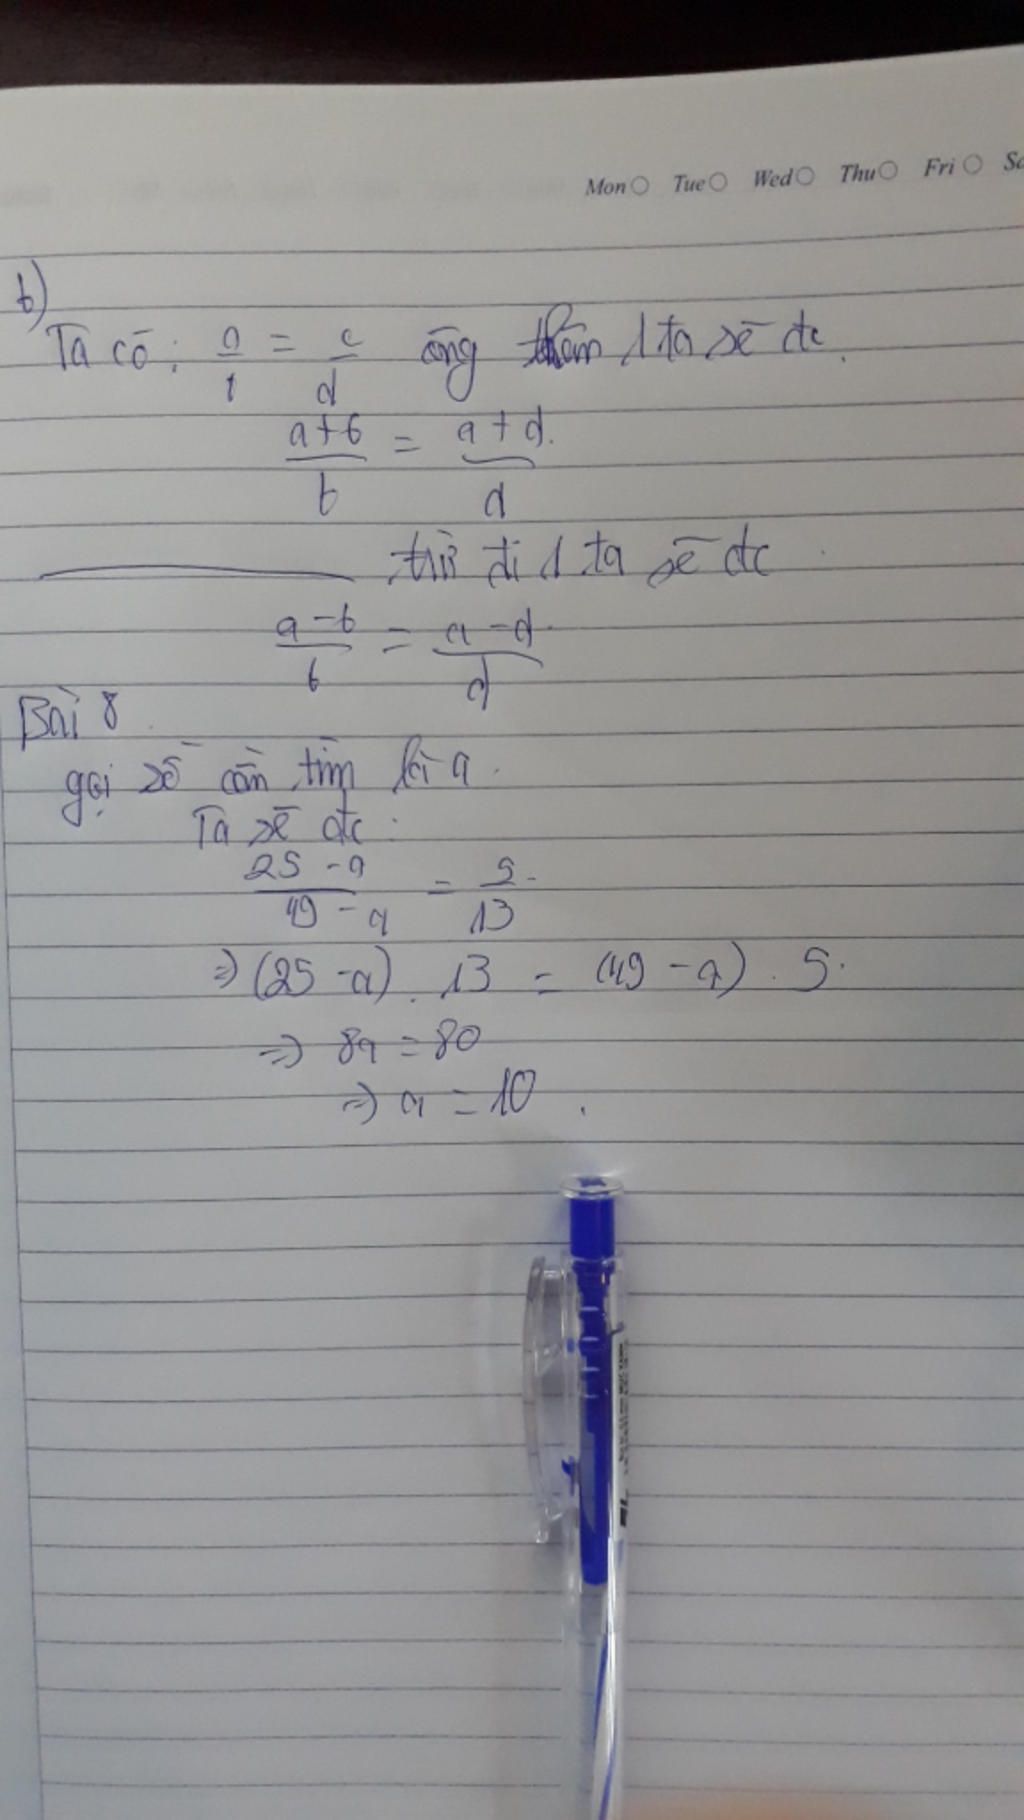 Mon Tue Wed Thu Fri
b)
Ta có: a/1 = c/d thêm 1 ta sẽ đc.
a+b/b = a+d/d.
trừ đi 1 ta sẽ đc
a-b/b = a-d/d.
Bài 8
gọi số cần tìm là a.
Ta sẽ đc:
25-a/49-a = 5/13
=> (25-a). 13 = (49-a). 5.
=> 8a = 80
=> a = 10.